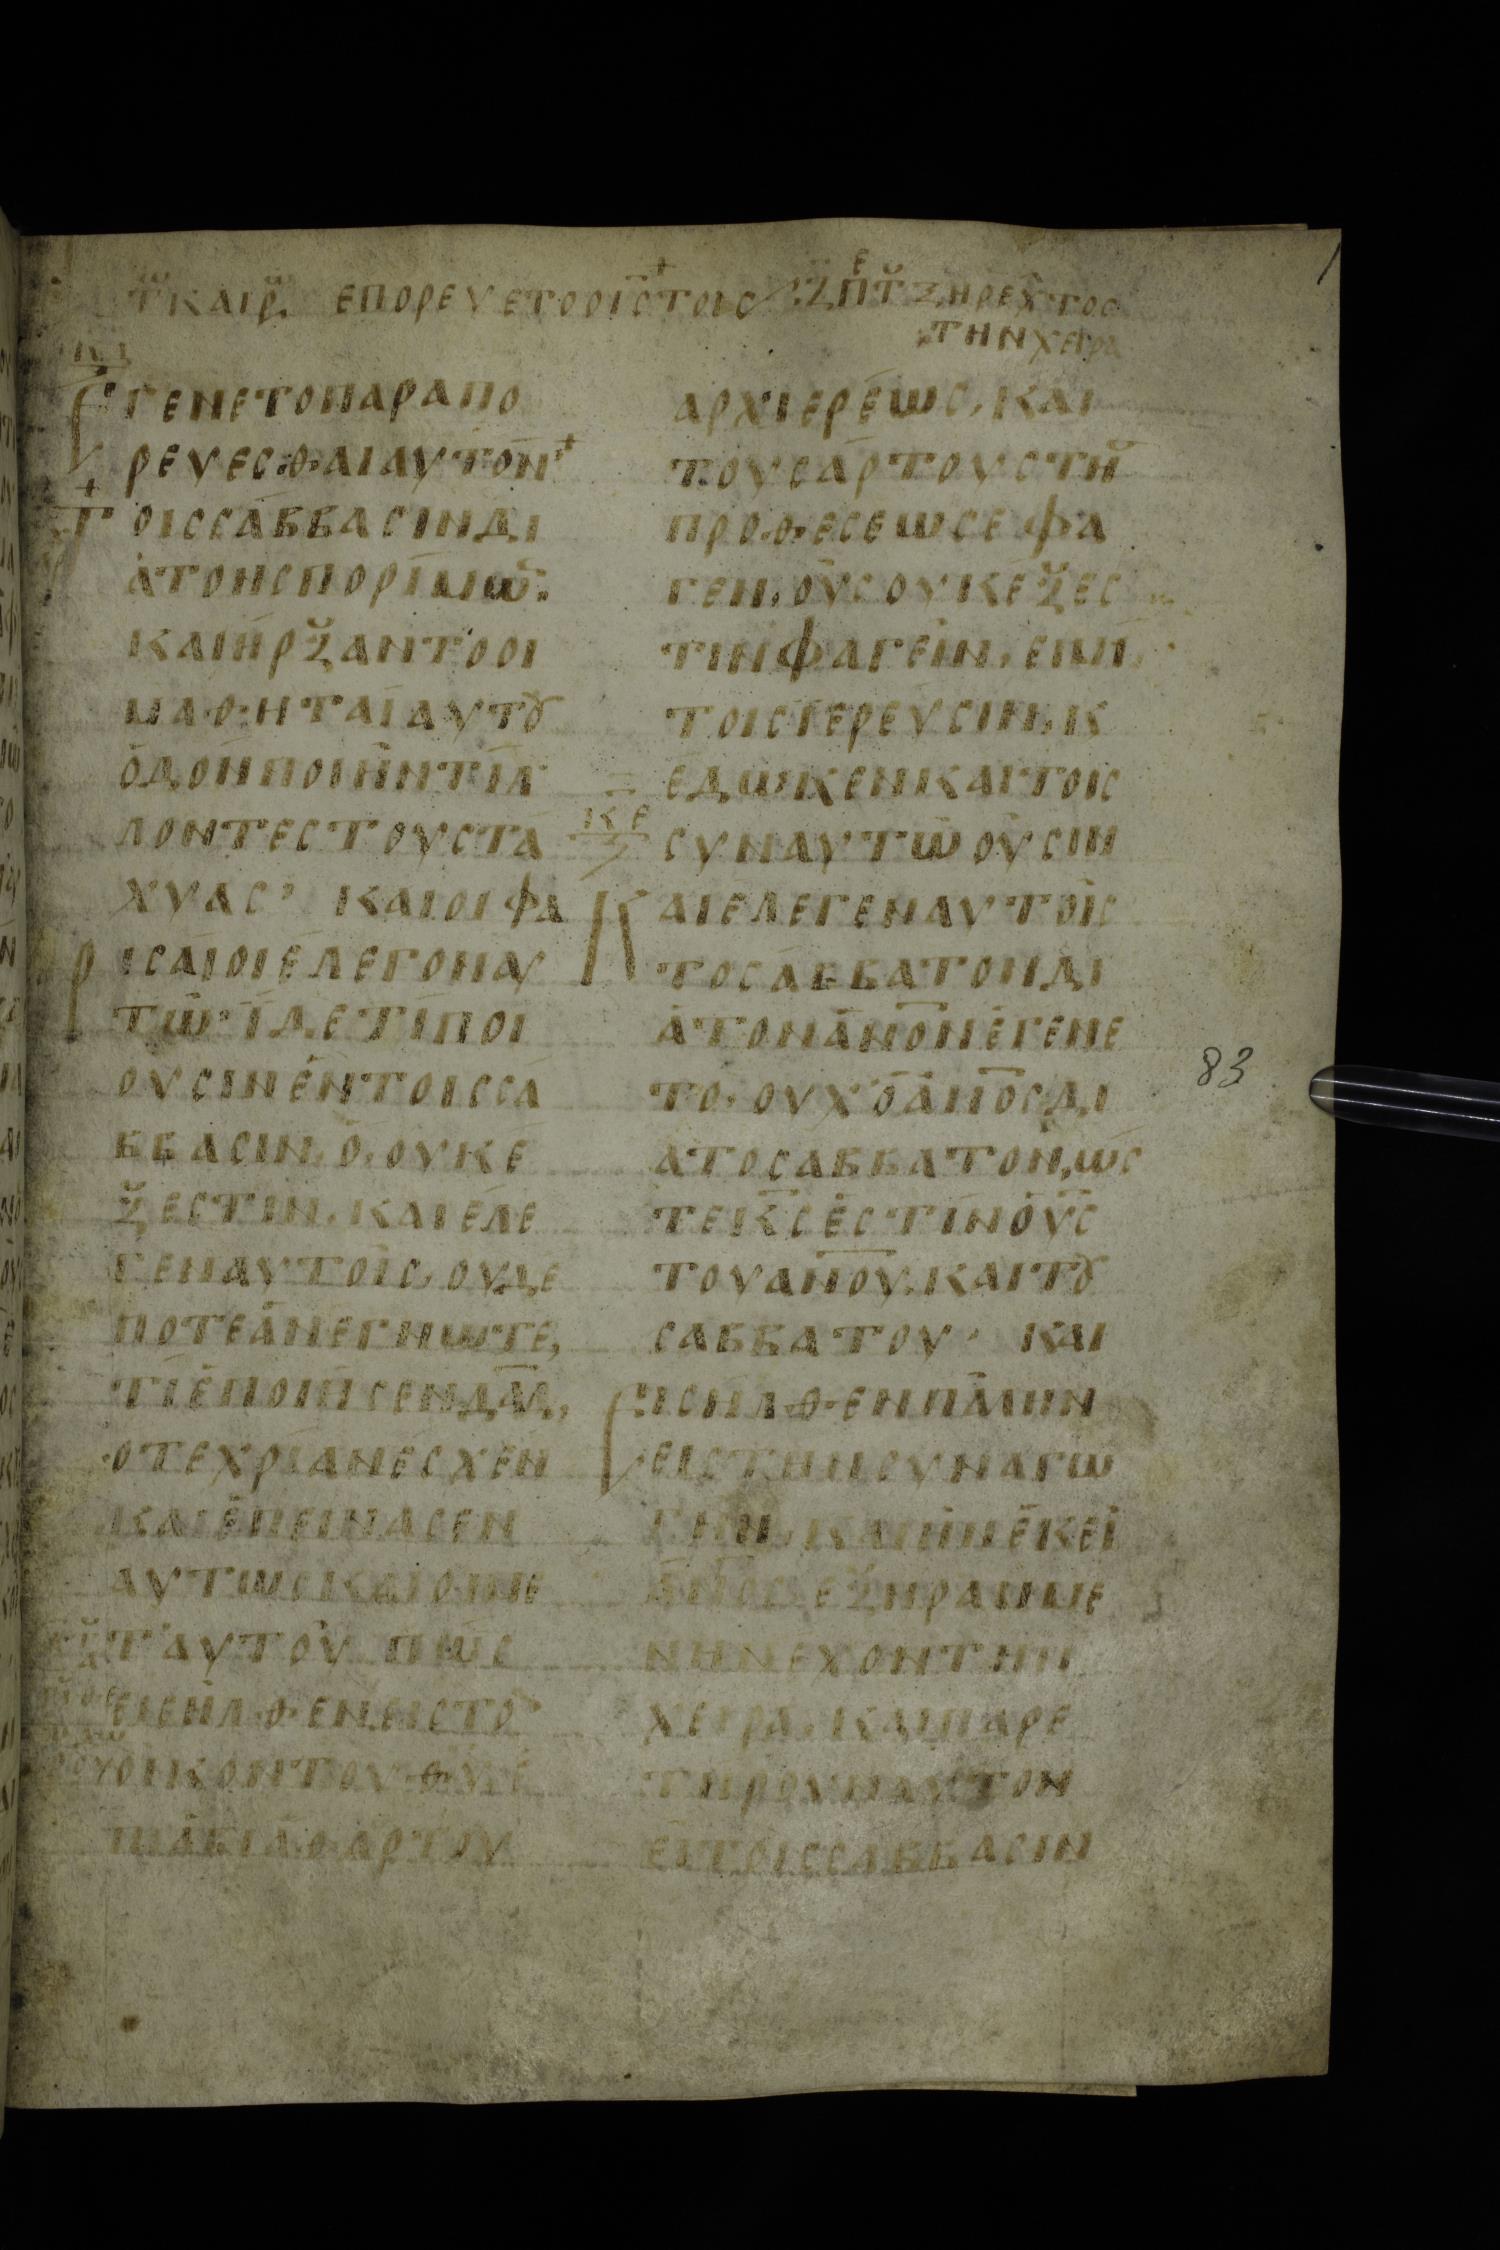 Τ ΚΑΙΡ. ΕΠΟΡΕΥΕΤΟΟΙ̅Σ̅ΤΟΙΣ
ΞΗΡΕΧΤΟΣ
ΤΗΝΧΕΙΡΑ
ΕΓΕΝΕΤΟΠΑΡΑΠΟ
ΡΕΥΕΣΘΑΙΑΥΤΟΝ
ΤΟΙΣΣΑΒΒΑΣΙΝΔΙ
ΑΤΟΝΣΠΟΡΙΜΩ̅.
ΚΑΙΗΡΞΑΝΤΟΟΙ
ΜΑΘΗΤΑΙΑΥΤȢ
ΟΔΟΝΠΟΙΗΝΤΙΛ
ΛΟΝΤΕΣΤΟΥΣΤΑ
ΧΥΑΣ, ΚΑΙΟΙΦΑ
ΡΙΣΑΙΟΙΕΛΕΓΟΝΑΥ
ΤΩ ΙΔΕΤΙΠΟΙ
ΟΥΣΙΝΕΝΤΟΙΣΣΑ
ΒΒΑΣΙΝ, Ο, ΟΥΚΕ
ΞΕΣΤΙΝ, ΚΑΙΕΛΕ
ΓΕΝΑΥΤΟΙΣ, ΟΥΔΕ
ΠΟΤΕΑΝΕΓΝΩΤΕ,
ΤΙΕΠΟΙΗΣΕΝΔΑ̅Δ̅,
ΟΤΕΧΡΙΑΝΕΣΧΕΝ
ΚΑΙΕΠΕΙΝΑΣΕΝ
ΑΥΤΩΣΚΑΙΟΙΜΕ
Τ ΑΥΤΟΥ ΠΩΣ
ΕΙΣΗΛΘΕΝΕΙΣΤΟ
ΟΙΚΟΝΤΟΥΘ̅Υ̅Ε
ΠΙΑΒΙΑΘΑΡΤΟΥ
ΑΡΧΙΕΡΕΩΣ, ΚΑΙ
ΤΟΥΣΑΡΤΟΥΣΤΗ
ΠΡΟΘΕΣΕΩΣΕΦΑ
ΓΕΝ, ΟΥΣΟΥΚΕΞΕΣ
ΤΙΝΦΑΓΕΙΝ, ΕΙΜΙ
ΤΟΙΣΙΕΡΕΥΣΙΝ, Κ
ΕΔΩΚΕΝΚΑΙΤΟΙΣ
Κ̅Ε̅ ΣΥΝΑΥΤΩΟΥΣΙΝ
ΚΑΙΕΛΕΓΕΝΑΥΤΟΙΣ
ΤΟΣΑΒΒΑΤΟΝΔΙ
ΑΤΟΝΑΝ̅Ο̅ΝΕΓΕΝΕ
ΤΟ, ΟΥΧ ΟΑΝ̅Ο̅ΣΔΙ
ΑΤΟΣΑΒΒΑΤΟΝ, ΩΣ
ΤΕΚ̅Σ̅ΕΣΤΙΝΟΥ̅Σ̅
ΤΟΥΑΝ̅Ο̅Υ, ΚΑΙΤȢ
ΣΑΒΒΑΤΟΥ, ΚΑΙ
ΕΙΣΗΛΘΕΝΠΑΛΙΝ
ΕΙΣΤΗΝΣΥΝΑΓΩ
ΓΗΝ, ΚΑΙΗΝΕΚΕΙ
ΑΝ̅Ο̅Σ ΕΞΗΡΑΜΜΕ
ΝΗΝΕΧΟΝΤΗΝ
ΧΕΙΡΑ, ΚΑΙΠΑΡΕ
ΤΗΡΟΥΝΑΥΤΟΝ
ΕΙΤΟΙΣΣΑΒΒΑΣΙΝ
83